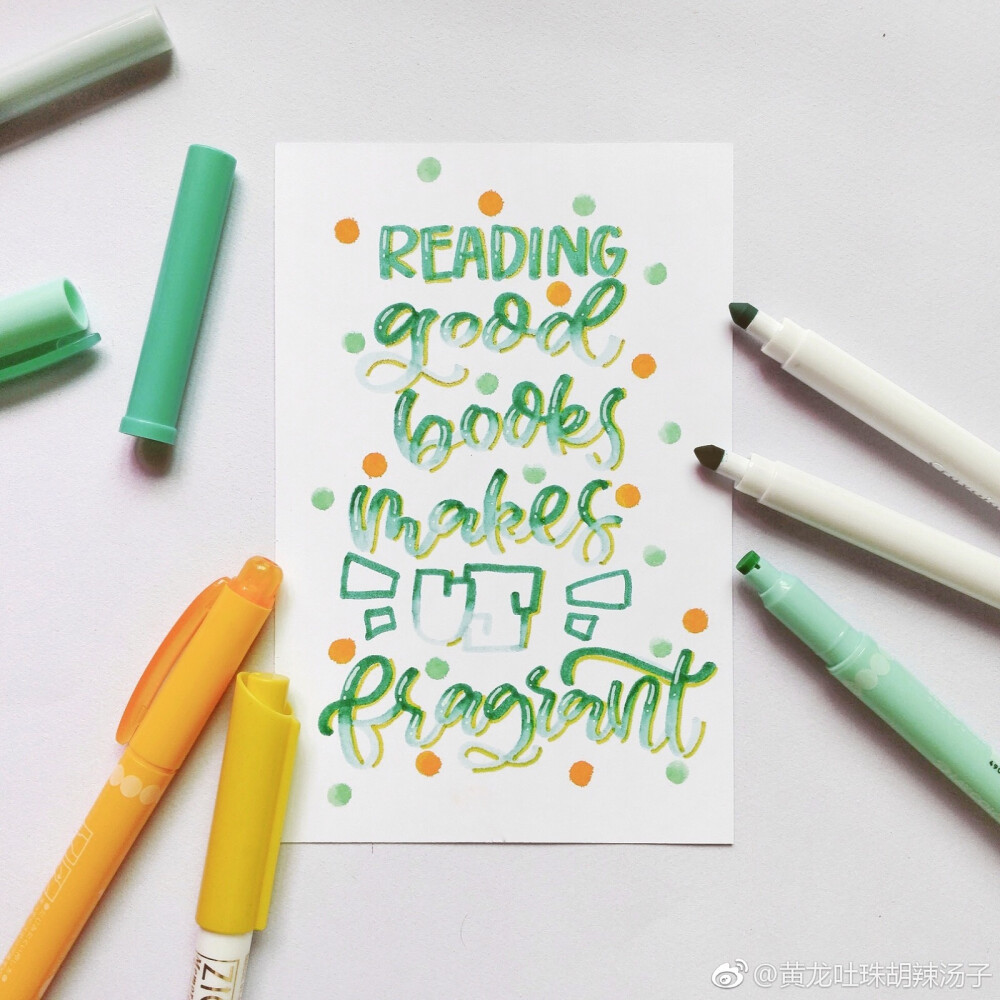 READING
good
books
makes
US
fragrant
ZIG
@黄龙吐珠胡辣汤子